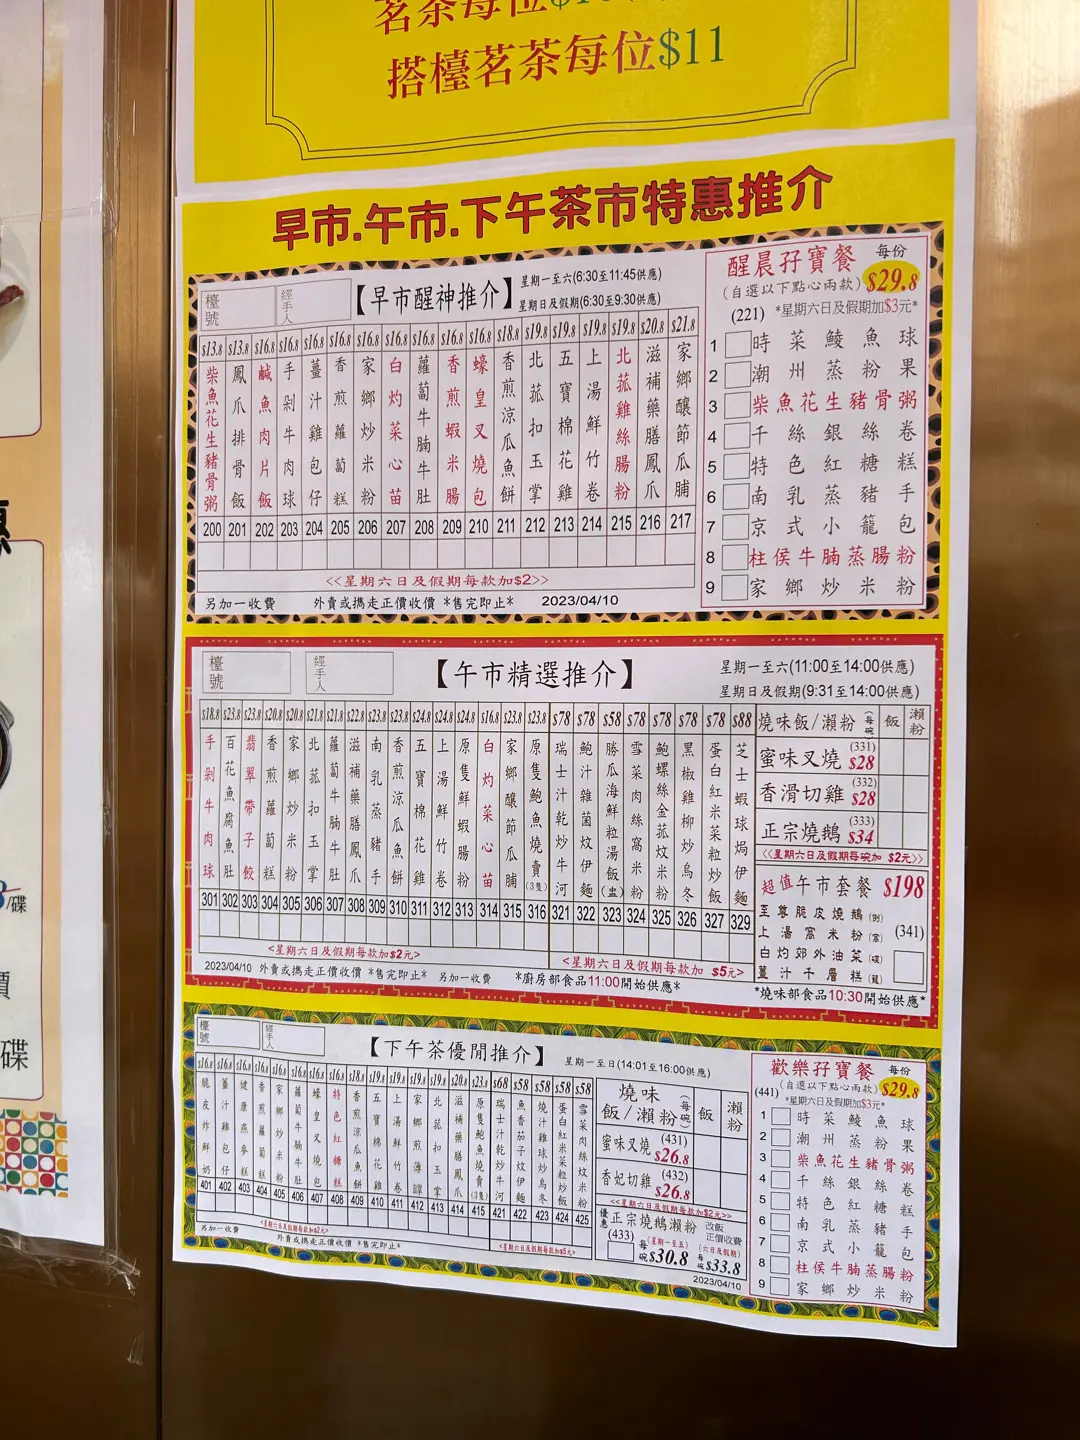 茗茶每位$1
搭檯茗茶每位$11
早市.午市.下午茶市特惠推介
檯號
經手人
【早市醒神推介】
星期一至六(6:30至11:45供應)
星期日及假期(6:30至9:30供應)
$13.8 柴魚花生豬骨粥 200
$13.8 鳳爪排骨飯 201
$16.8 鹹魚肉片飯 202
$16.8 手剁牛肉球 203
$16.8 薑汁雞包仔 204
$16.8 香煎蘿蔔糕 205
$16.8 家鄉炒米粉 206
$16.8 白灼菜心苗 207
$16.8 蘿蔔牛腩牛肚 208
$16.8 香煎蝦米腸 209
$16.8 蠔皇叉燒包 210
$18.8 香煎涼瓜魚餅 211
$19.8 北菰扣玉掌 212
$19.8 五寶棉花雞 213
$19.8 上湯鮮竹卷 214
$19.8 北菰雞絲腸粉 215
$20.8 滋補藥膳鳳爪 216
$21.8 家鄉釀節瓜脯 217
<<星期六日及假期每款加$2>>
另加一收費 外賣或攜走正價收價 *售完即止* 2023/04/10
醒晨孖寶餐 每份
(自選以下點心兩款) $29.8
(221) *星期六日及假期加$3元*
1 時菜鯪魚球
2 潮州蒸粉果
3 柴魚花生豬骨粥
4 千絲銀絲卷
5 特色紅糖糕
6 南乳蒸豬手
7 京式小籠包
8 柱侯牛腩蒸腸粉
9 家鄉炒米粉
檯號
經手人
【午市精選推介】
星期一至六(11:00至14:00供應)
星期日及假期(9:31至14:00供應)
$18.8 手剁牛肉球 301
$23.8 百花魚腐魚肚 302
$23.8 翡翠帶子餃 303
$20.8 香煎蘿蔔糕 304
$20.8 家鄉炒米粉 305
$21.8 北菰扣玉掌 306
$21.8 蘿蔔牛腩牛肚 307
$22.8 滋補藥膳鳳爪 308
$23.8 南乳蒸豬手 309
$23.8 香煎涼瓜魚餅 310
$24.8 五寶棉花雞 311
$24.8 上湯鮮竹卷 312
$24.8 原隻鮮蝦腸粉 313
$16.8 白灼菜心苗 314
$23.8 家鄉釀節瓜脯 315
$23.8 原隻鮑魚燒賣(3隻) 316
$78 瑞士汁乾炒牛河 321
$78 鮑汁雜菌炆伊麵 322
$58 勝瓜海鮮粒湯飯(盅) 323
$78 雪菜肉絲窩米粉 324
$78 鮑螺絲金菰炆米粉 325
$78 黑椒雞柳炒烏冬 326
$78 蛋白紅米菜粒炒飯 327
$88 芝士蝦球焗伊麵 329
<星期六日及假期每款加$2元>
<星期六日及假期每款加 $5元>
2023/04/10 外賣或攜走正價收價 *售完即止* 另加一收費 *廚房部食品11:00開始供應*
燒味飯/瀨粉(每碗) 飯 瀨粉
蜜味叉燒 (331) $28
香滑切雞 (332) $28
正宗燒鵝 (333) $34
<<星期六日及假期每碗加 $2元>>
超值午市套餐 $198
至尊脆皮燒鵝(例)
上湯窩米粉(窩)
白灼郊外油菜(碟)
薑汁千層糕(籠)
(341)
*燒味部食品10:30開始供應*
檯號
經手人
【下午茶優閒推介】
星期一至日(14:01至16:00供應)
$16.8 脆皮炸鮮奶 401
$16.8 薑汁雞包仔 402
$16.8 健康燕麥糕 403
$16.8 香煎蘿蔔糕 404
$16.8 家鄉炒米粉 405
$16.8 蘿蔔牛腩牛肚 406
$16.8 蠔皇叉燒包 407
$16.8 特色紅糖糕 408
$18.8 香煎涼瓜魚餅 409
$19.8 五寶棉花雞 410
$19.8 上湯鮮竹卷 411
$19.8 家鄉煎薄罉 412
$19.8 北菰扣玉掌 413
$20.8 滋補藥膳鳳爪 414
$23.8 原隻鮑魚燒賣(3隻) 415
$68 瑞士汁乾炒牛河 421
$58 魚香茄子炆伊麵 422
$58 燒汁雞球炒烏冬 423
$58 蛋白紅米菜粒炒飯 424
$58 雪菜肉絲炆米粉 425
<星期六日及假期每款加$2元>
<星期六日及假期每款加$5元>
另加一收費
外賣或攜走正價收價 *售完即止*
燒味飯/瀨粉(每碗) 飯 瀨粉
蜜味叉燒 (431) $26.8
香妃切雞 (432) $26.8
<<星期六日及假期每碗加$2元>>
優惠 正宗燒鵝瀨粉 改飯正價收費
(433) (星期一至五) (六日及假期)
每碗$30.8 每碗$33.8
2023/04/10
歡樂孖寶餐 每份
(自選以下點心兩款) $29.8
(441) *星期六日及假期加$3元*
1 時菜鯪魚球
2 潮州蒸粉果
3 柴魚花生豬骨粥
4 千絲銀絲卷
5 特色紅糖糕
6 南乳蒸豬手
7 京式小籠包
8 柱侯牛腩蒸腸粉
9 家鄉炒米粉
/碟
碟